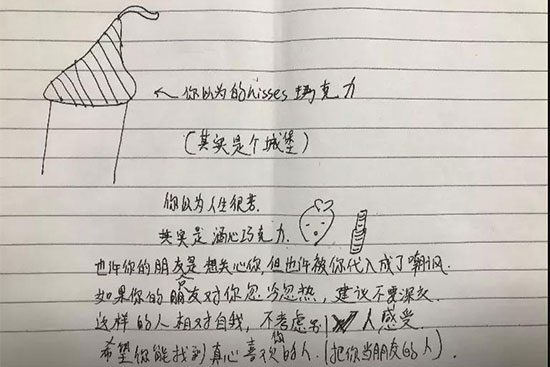 ←你以为的kisses巧克力
(其实是个城堡)
你以为人生很苦.
其实是 酒心巧克力.
也许你的朋友是想关心你,但也许被你代入成了嘲讽.
如果你的朋友对你忽冷忽热,建议不要深交
这样的人相对自我,不考虑别人感受.
希望你能找到真心喜欢你的人.(把你当朋友的人).